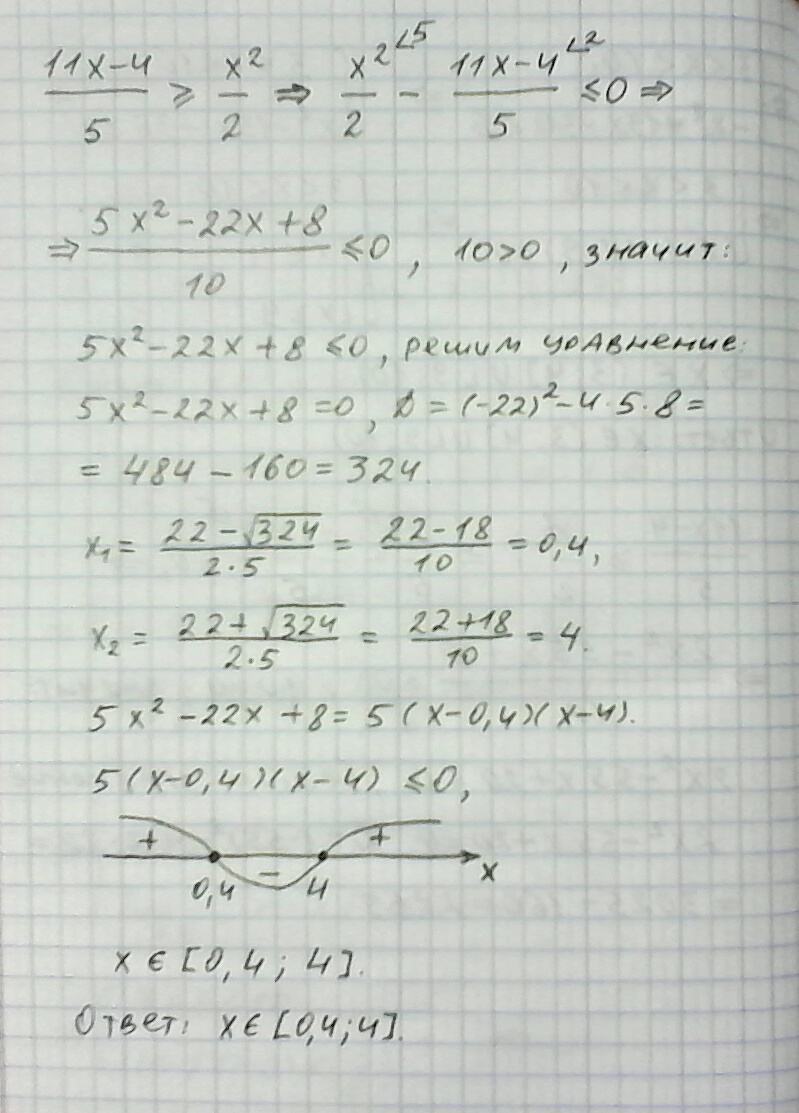 (11x-4)/5 ⩾ x²/2 ⇒ x²/2 ∠5 - (11x-4)/5 ∠2 ⩽0 ⇒
⇒ (5x²-22x+8)/10 ⩽0, 10>0, значит:
5x²-22x+8 ⩽0, решим уравнение:
5x²-22x+8=0, D=(-22)²-4·5·8=
= 484-160=324.
x₁= (22-√324)/(2·5) = (22-18)/10 = 0,4,
x₂ = (22+√324)/(2·5) = (22+18)/10 = 4.
5x²-22x+8=5(x-0,4)(x-4).
5(x-0,4)(x-4) ⩽0,
+ - + x
0,4 4
x ∈ [0,4; 4].
Ответ: x∈[0,4;4].